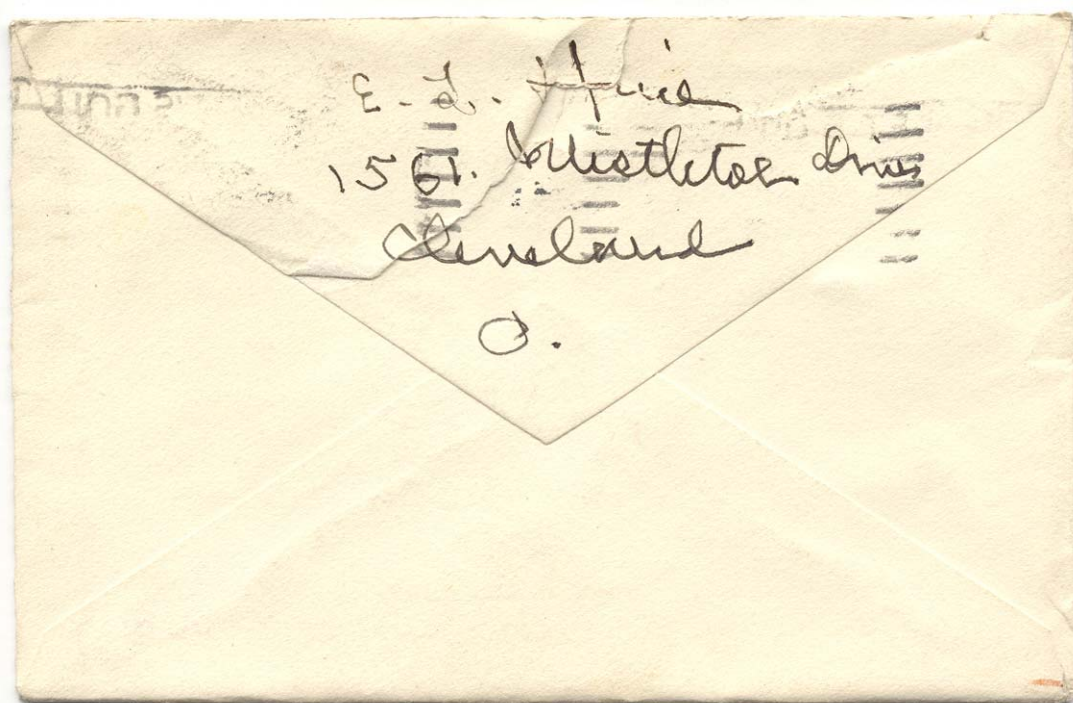 E. L. Huie
1561. Mistletoe Drive
Cleveland
O.